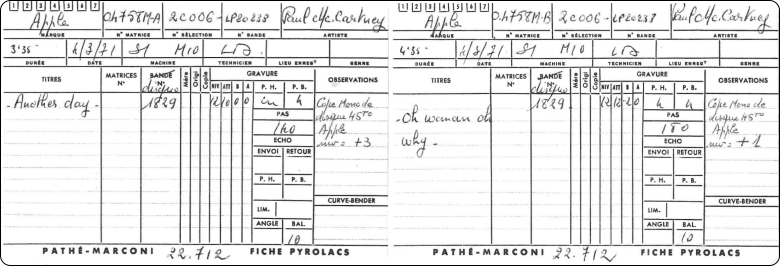 1 2 3 4 5 6 7
Apple 04758M-A 2C006- LP20238 Paul Mc. Cartney
MARQUE N° MATRICE N° SÉLECTION N° BANDE ARTISTE
3'35" 4/3/71 S1 M10
DURÉE DATE MACHINE TECHNICIEN LIEU ENREGT GENRE
TITRES MATRICES N° BANDE N° disque Mère Origi Copie GRAVURE OBSERVATIONS
NIV ATT B A P. H. P. B.
- Another day - 1829 12 10 0 0 Copie Mono de
disque 45T
Apple
niv = +3
PAS
140
ECHO
ENVOI RETOUR
P. H. P. B.
CURVE-BENDER
LIM.
ANGLE BAL.
10
PATHÉ-MARCONI 22.712 FICHE PYROLACS
1 2 3 4 5 6 7
Apple 04758M-B 2C006- LP20238 Paul Mc. Cartney
MARQUE N° MATRICE N° SÉLECTION N° BANDE ARTISTE
4'35" 4/3/71 S1 M10
DURÉE DATE MACHINE TECHNICIEN LIEU ENREGT GENRE
TITRES MATRICES N° BANDE N° disque Mère Origi Copie GRAVURE OBSERVATIONS
NIV ATT B A P. H. P. B.
- Oh woman oh 1829 12 12 -2 0 Copie Mono de
why - disque 45T
Apple
niv = +1
PAS
180
ECHO
ENVOI RETOUR
P. H. P. B.
CURVE-BENDER
LIM.
ANGLE BAL.
10
PATHÉ-MARCONI 22.712 FICHE PYROLACS